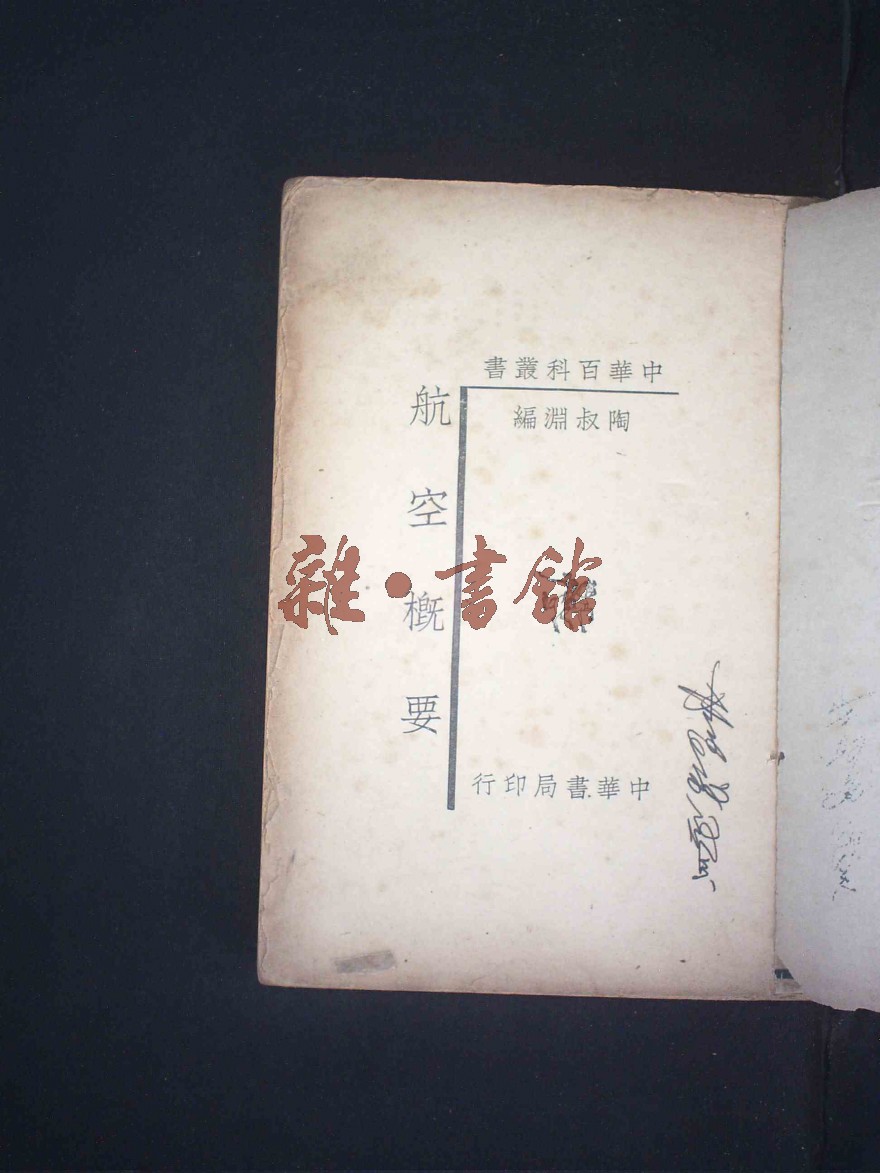 中華百科叢書
陶叔淵編
航空概要
中華書局印行
雜·書館